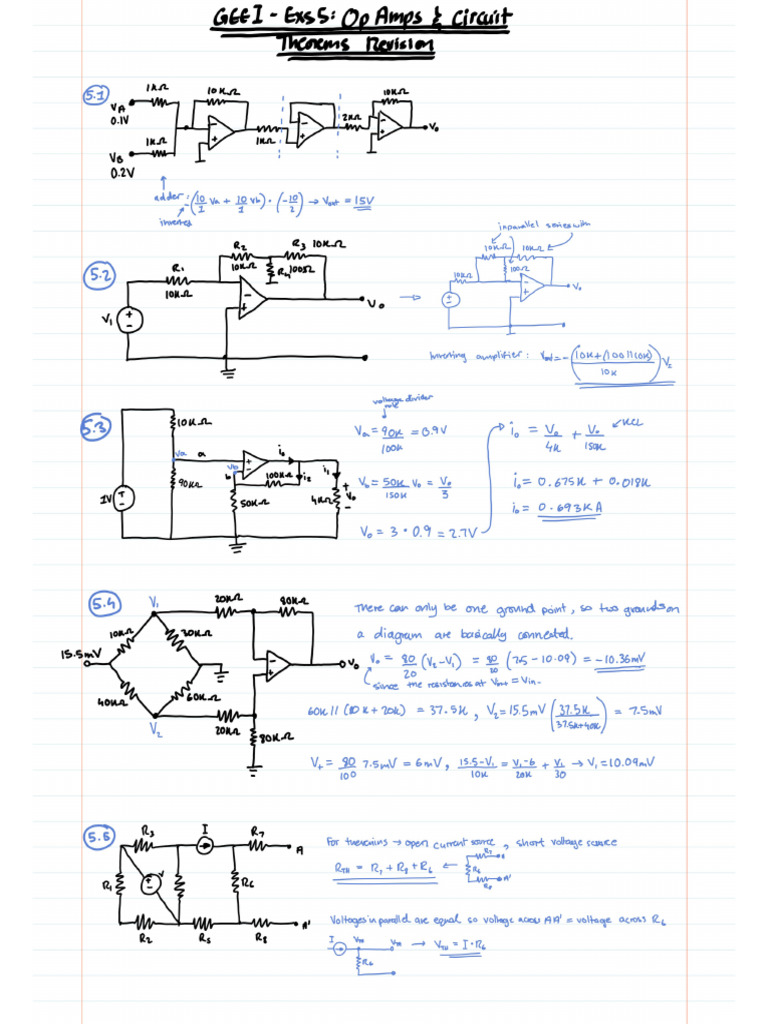 GEEI - Exs 5: Op Amps & Circuit
Theorems Revision
5.1
1KΩ
10KΩ
10KΩ
VA
0.1V
1KΩ
1KΩ
2KΩ
Vo
VB
0.2V
adder: -(10/1 Va + 10/1 Vb) · (-10/2) → Vout = 15V
inverted
5.2
R1
10KΩ
R2
10KΩ
R3 10KΩ
R4 100Ω
V1
Vo
→
in parallel series with
10KΩ
10KΩ
10KΩ
100Ω
Vo
Inverting amplifier: Vout = -(10K + (100||10K) / 10K) V2
5.3
10KΩ
Va
a
90KΩ
1V
Vb
b
io
100KΩ
i2
i1
50KΩ
4KΩ
Vo
voltage divider rule
Va = 90K/100K = 0.9V
Vb = 50K/150K Vo = Vo/3
Vo = 3 · 0.9 = 2.7V
io = Vo/4K + Vo/150K ← KCL
io = 0.675K + 0.018K
io = 0.693KA
5.4
V1
20KΩ
80KΩ
10KΩ
30KΩ
15.5mV
40KΩ
60KΩ
Vo
V2
20KΩ
80KΩ
There can only be one ground point, so two grounds on
a diagram are basically connected.
Vo = 80/20 (V2 - V1) = 80/20 (7.5 - 10.09) = -10.36mV
since the resistances at Vin+ = Vin-
60K || (80K + 20K) = 37.5K, V2 = 15.5mV (37.5K / 37.5K+40K) = 7.5mV
V+ = 80/100 7.5mV = 6mV, 15.5-V1/10K = V1-6/20K + V1/30 → V1 = 10.09mV
5.5
R3
I
R7
A
R1
V
R6
R2
R5
R8
A'
For thevenins → open current source, short voltage source
RTH = R7 + R8 + R6 ←
R7
A
R6
R8
A'
Voltages in parallel are equal so voltage across AA' = voltage across R6
I
VTH
VTH
→ VTH = I · R6
R6